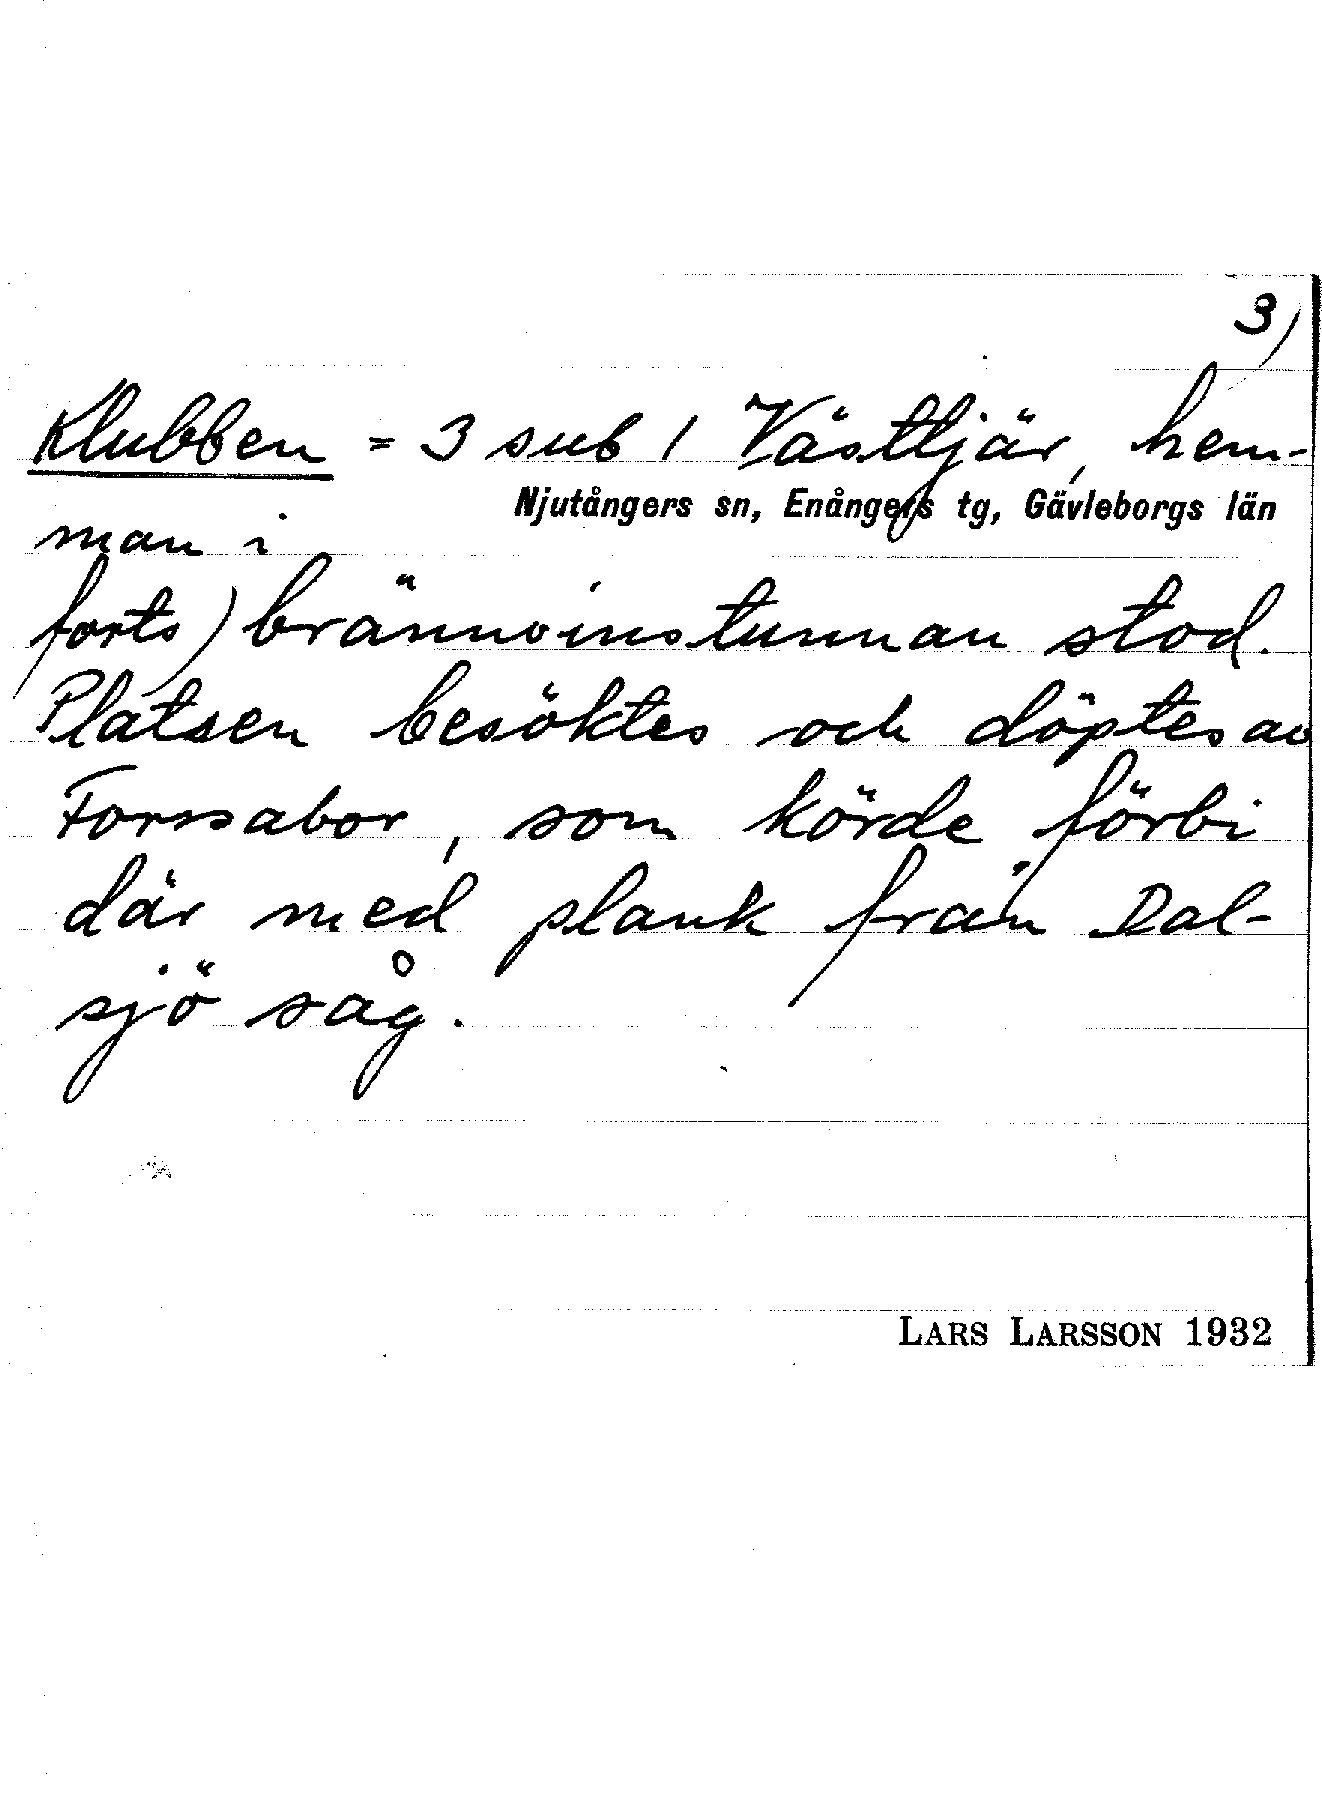 3)
Klubben = 3 sub 1 Västtjär, hem-
Njutångers sn, Enångers tg, Gävleborgs län
man i
forts) brännvinstunnan stod.
Platsen besöktes och döptes av
Forssabor, som körde förbi
där med plank från Dal-
sjö såg.
LARS LARSSON 1932